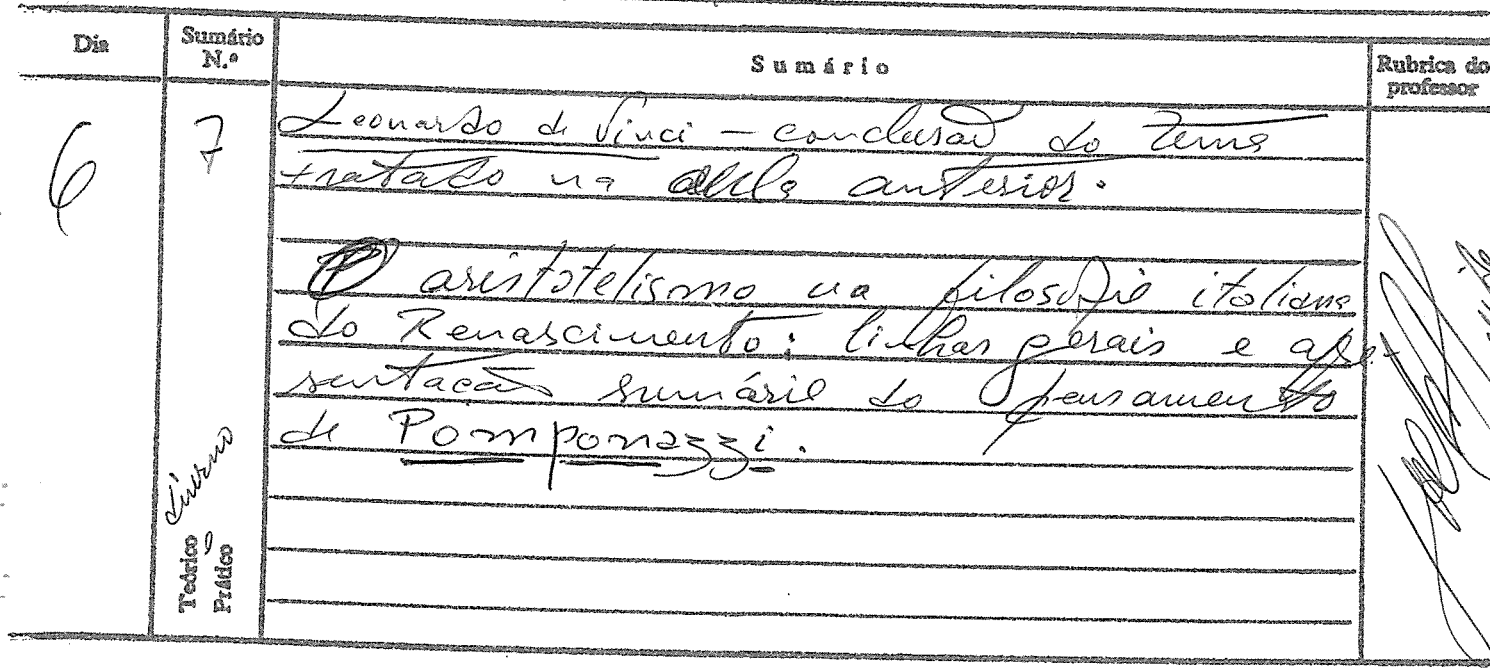 Dia Sumário N.º Sumário Rubrica do professor
6 7 Leonardo de Vinci – conclusão do tema
tratado na aula anterior.
O aristotelismo na filosofia italiana
do Renascimento: linhas gerais e apre-
sentação sumária do pensamento
de Pomponazzi.
diurno
Teórico
Prático